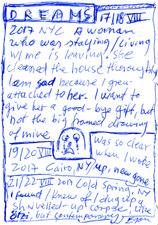 DREAMS 17/18 VIII
2017 NYC A woman
who was staying/living
w/me is leaving. She
cleaned the house throughly
I am sad because I grew
attached to her. I want to
give her a good-bye gift, but
not the big framed drawing
of mine
Was so clear
when I wrote
19/20 VIII
2017 Cairo, NY, up, now gone
21/22 VIII 2017 Cold Spring, NY
I found/knew of/dug up a
shrivelled-up corpse, like
Ötzi, but contemporary